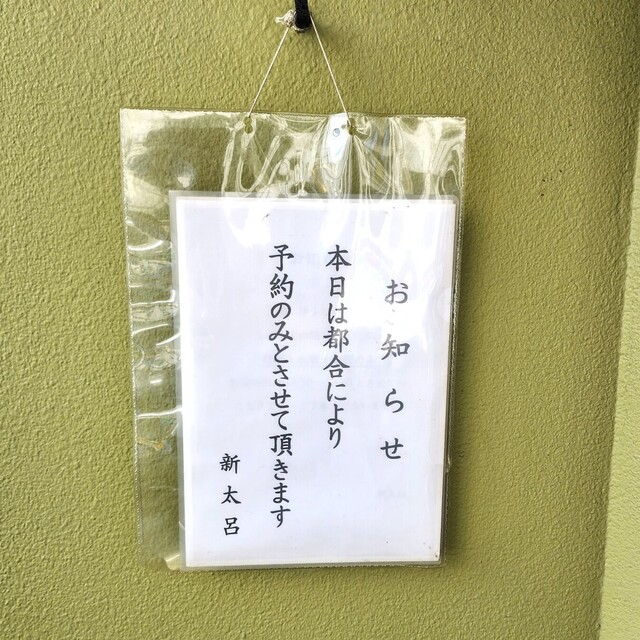 お知らせ
本日は都合により
予約のみとさせて頂きます
新太呂